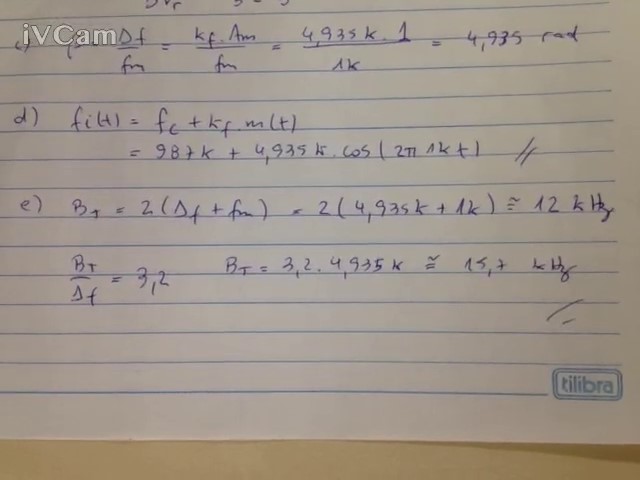 iVCam
c) β = Δf/fm = kf.Am/fm = 4,935k.1/1k = 4,935 rad
d) fi(t) = fc + kf.m(t)
= 987k + 4,935k.cos(2π1kt) //
e) BT = 2(Δf + fm) = 2(4,935k + 1k) ≅ 12 kHz
BT/Δf = 3,2 BT = 3,2.4,935k ≅ 15,7 kHz
tilibra